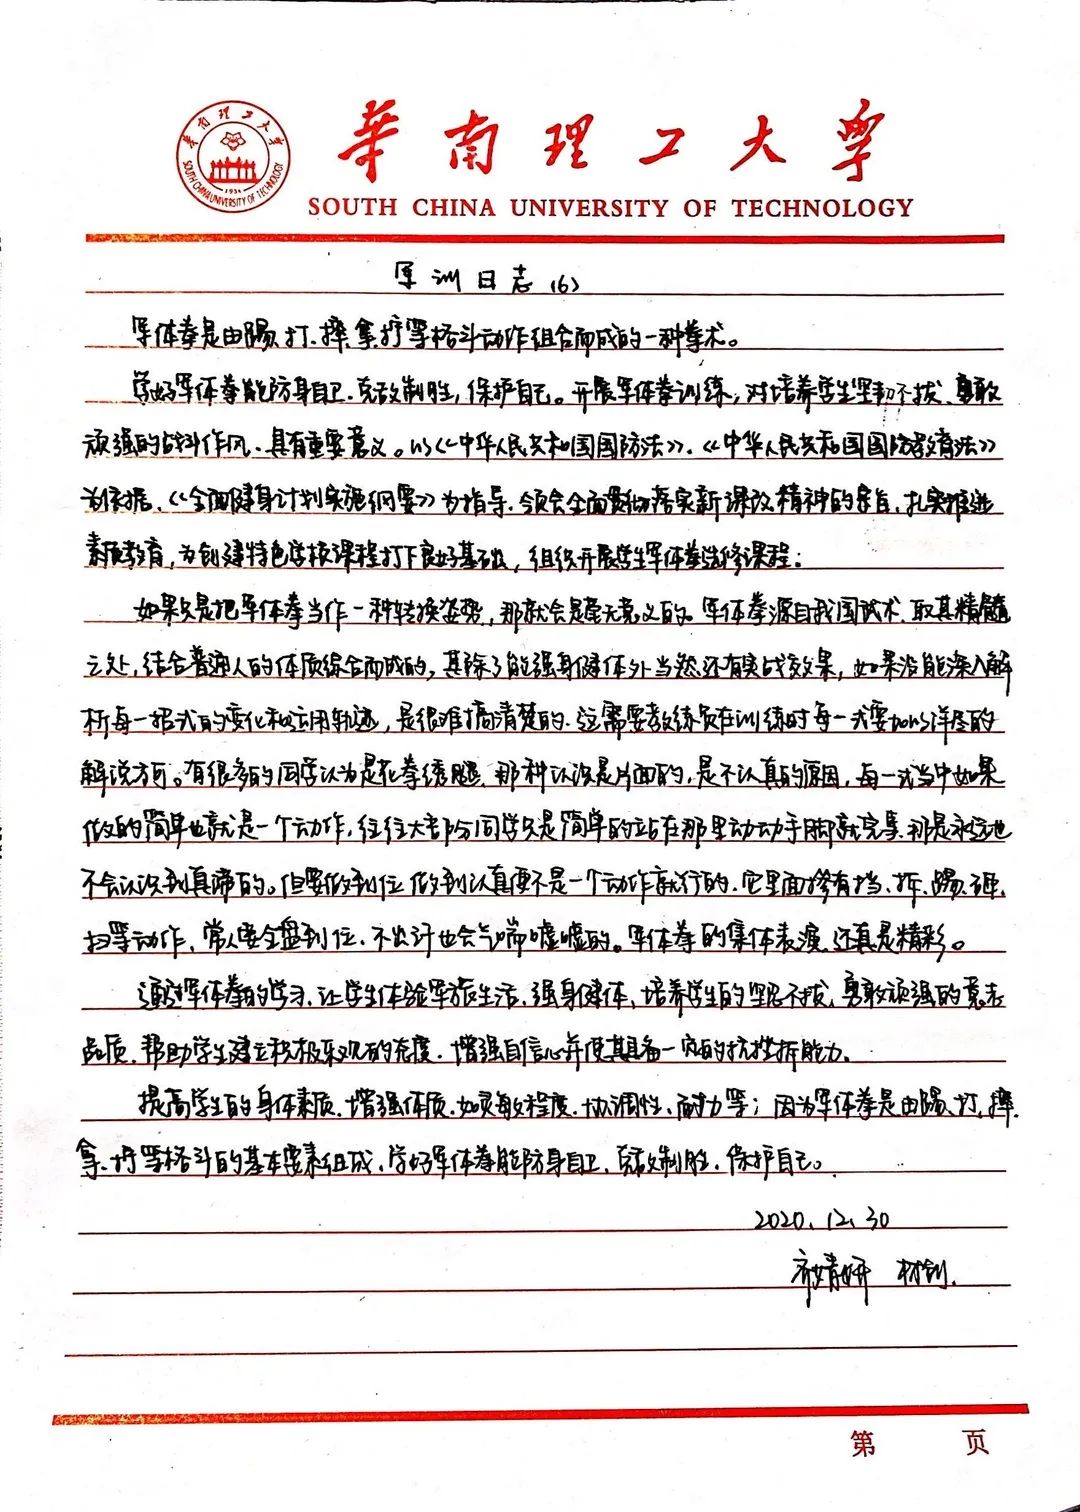 华南理工大学
华南理工大学
SOUTH CHINA UNIVERSITY OF TECHNOLOGY
1934
SOUTH CHINA UNIVERSITY OF TECHNOLOGY
军训日志(6)
军体拳是由踢、打、摔、拿、拧等格斗动作组合而成的一种拳术。
学好军体拳能防身自卫、克敌制胜,保护自己。开展军体拳训练,对培养学生坚韧不拔、勇敢
顽强的战斗作风、具有重要意义。以《中华人民共和国国防法》、《中华人民共和国国防教育法》
为依据、《全面健身计划实施纲要》为指导、领会全面贯彻落实新课改精神的宗旨,扎实推进
素质教育,为创建特色学校课程打下良好基础,组织开展学生军体拳选修课程:
如果只是把军体拳当作一种转换姿势,那就会是毫无意义的。军体拳源自我国武术、取其精髓
之处,结合普通人的体质综合而成的,其除了能强身健体外当然还有实战效果,如果没能深入解
析每一招式的变化和运用轨迹,是很难搞清楚的、这需要教练员在训练时每一式要加以详尽的
解说方可。有很多的同学认为是花拳绣腿、那种认识是片面的,是不认真的原因,每一式当中如果
做的简单也就是一个动作,往往大部分同学只是简单的站在那里动动手脚就完事,那是永远也
不会认识到真谛的。但要做到位、做到认真便不是一个动作就行的、它里面掺有挡、拆、踢、砸、
扫等动作、常人要全盘到位、不出汗也会气喘嘘嘘的。军体拳的集体表演、还真是精彩。
通过军体拳的学习、让学生体验军旅生活、强身健体、培养学生的坚忍不拔、勇敢顽强的意志
品质、帮助学生建立积极乐观的态度、增强自信心并使其具备一定的抗挫折能力。
提高学生的身体素质、增强体质、如灵敏程度、协调性、耐力等;因为军体拳是由踢、打、摔、
拿、拧等格斗的基本要素组成、学好军体拳能防身自卫、克敌制胜、保护自己。
2020.12.30
齐婧妍 材创.
第 页